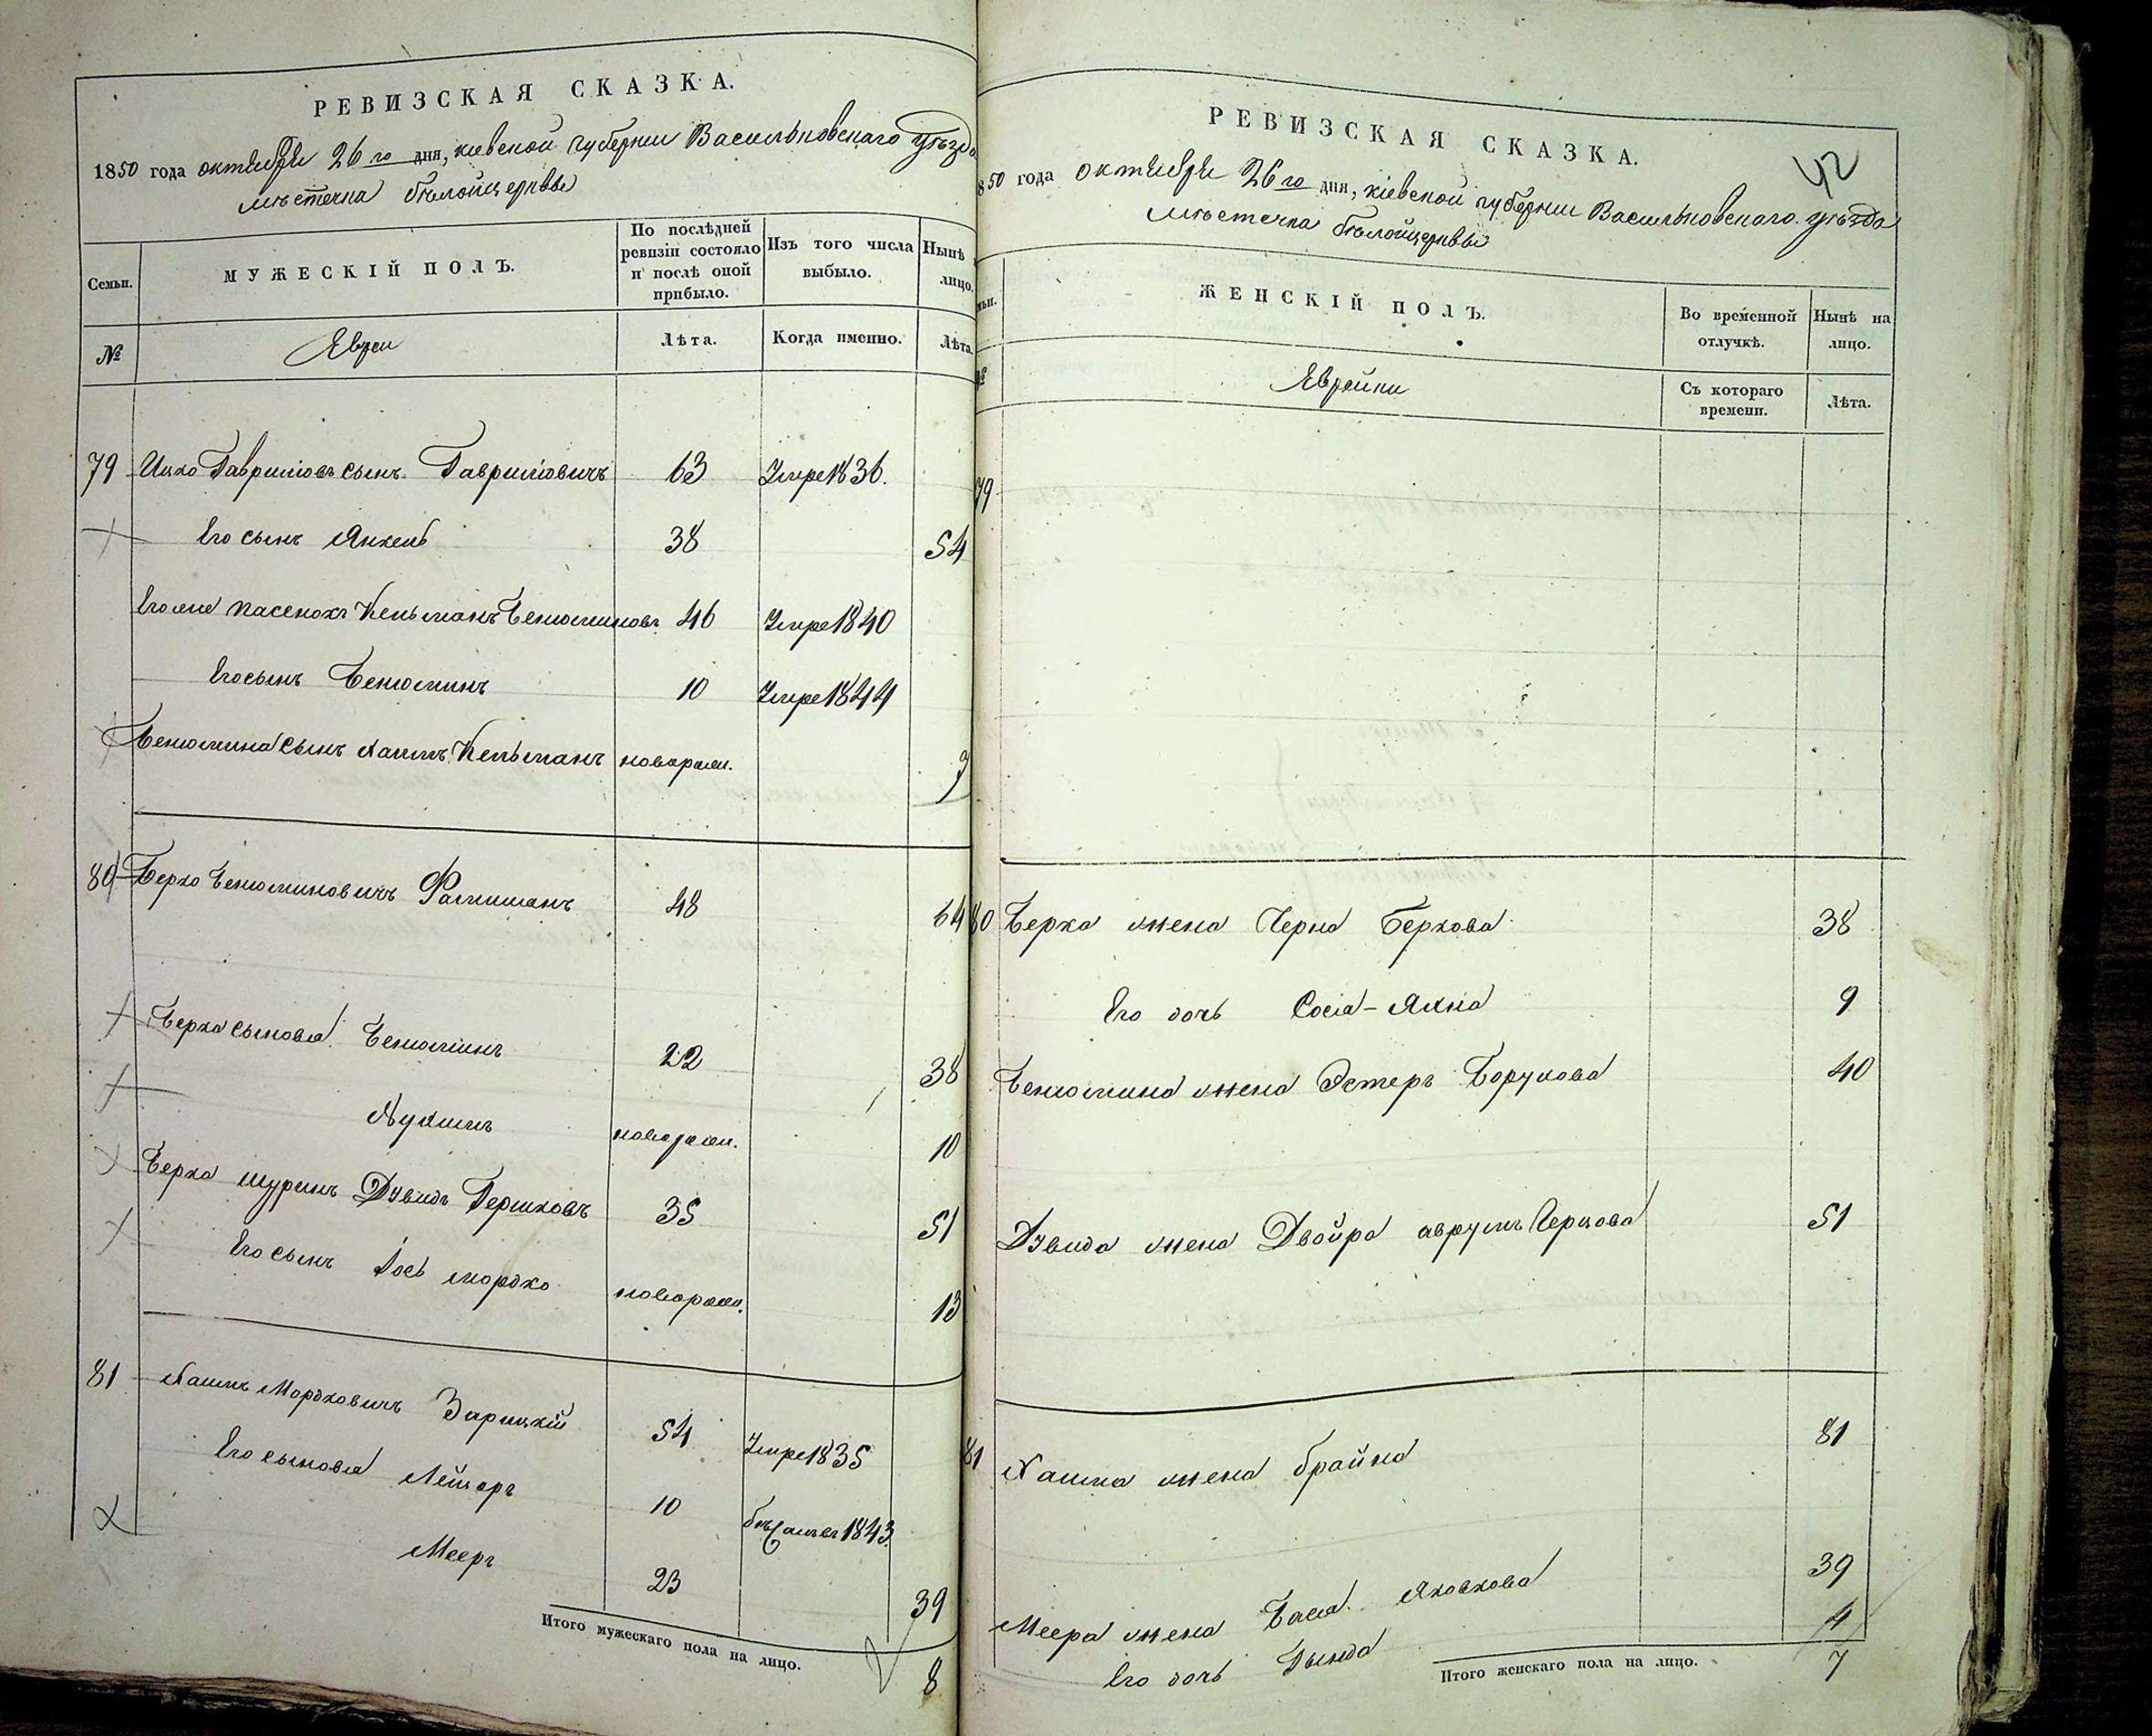 РЕВИЗСКАЯ СКАЗКА.
1850 года октября 26го дня, Кіевской губерніи Васильковскаго уѣзда
мѣстечка Бѣлойцеркви
Семьи.
МУЖЕСКІЙ ПОЛЪ.
По послѣдней ревизіи состояло и послѣ оной прибыло.
Изъ того числа выбыло.
Нынѣ лицо.
№ Евреи Лѣта. Когда именно. Лѣта.
79 Ицко Гавриловъ сынъ Гавриловичъ 63 Умре 1836.
Его сынъ Янкель 38 54
Его же пасенокъ Кельманъ Бенюминовъ 46 Умре 1840
Его сынъ Бенюминъ 10 Умре 1844
Бенюмина сынъ Хаимъ Кельманъ новорож.
80 Берко Бенюминовичъ 48 64
Берка сыновья Бенюминъ 22 38
новорож. 10
Берка шуринъ Дувидъ Гершковъ 35 51
Его сынъ Іось Мордко новорож. 13
81 Мордковичъ Зарицкій 54 Умре 1835
Его сыновья Лейзоръ 10 1843.
Мееръ 23 39
Итого мужескаго пола на лицо. 8
РЕВИЗСКАЯ СКАЗКА.
42
850 года октября 26го дня, Кіевской губерніи Васильковскаго уѣзда
мѣстечка Бѣлойцеркви
ьи.
ЖЕНСКІЙ ПОЛЪ.
Во временной отлучкѣ.
Нынѣ на лицо.
№ Еврейки Съ котораго времени. Лѣта.
79
80 Берка жена Черна Беркова 38
Его дочь Сося-Яхна 9
Бенюмина жена Эстеръ Борухова 40
Дувида жена Двойра Аврумъ Герцова 51
81 жена Брайна 81
Меера жена Бася Яковкова 39
Его дочь Дында 4
Итого женскаго пола на лицо. 7